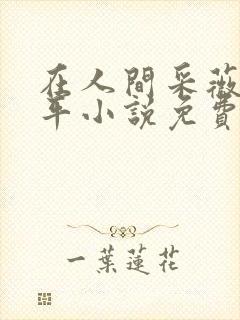 在人間采薇
年小説免費
一葉蓮花